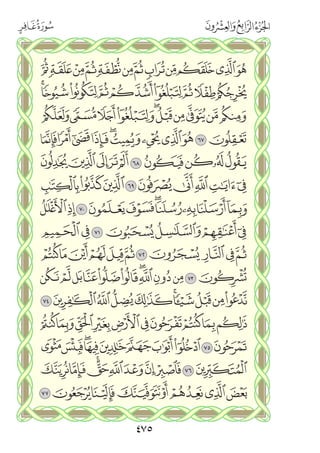 الجُزْءُ الرَّابِعُ وَالعِشْرُونَ سُورَةُ غَافِرٍ
هُوَ ٱلَّذِى خَلَقَكُم مِّن تُرَابٍ ثُمَّ مِن نُّطْفَةٍ ثُمَّ مِنْ عَلَقَةٍ ثُمَّ
يُخْرِجُكُمْ طِفْلًا ثُمَّ لِتَبْلُغُوٓا۟ أَشُدَّكُمْ ثُمَّ لِتَكُونُوا۟ شُيُوخًا
وَمِنكُم مَّن يُتَوَفَّىٰ مِن قَبْلُ ۖ وَلِتَبْلُغُوٓا۟ أَجَلًا مُّسَمًّى وَلَعَلَّكُمْ
تَعْقِلُونَ ٦٧ هُوَ ٱلَّذِى يُحْىِۦ وَيُمِيتُ ۖ فَإِذَا قَضَىٰٓ أَمْرًا فَإِنَّمَا
يَقُولُ لَهُۥ كُن فَيَكُونُ ٦٨ أَلَمْ تَرَ إِلَى ٱلَّذِينَ يُجَٰدِلُونَ
فِىٓ ءَايَٰتِ ٱللَّهِ أَنَّىٰ يُصْرَفُونَ ٦٩ ٱلَّذِينَ كَذَّبُوا۟ بِٱلْكِتَٰبِ
وَبِمَآ أَرْسَلْنَا بِهِۦ رُسُلَنَا ۖ فَسَوْفَ يَعْلَمُونَ ٧٠ إِذِ ٱلْأَغْلَٰلُ
فِىٓ أَعْنَٰقِهِمْ وَٱلسَّلَٰسِلُ يُسْحَبُونَ ٧١ فِى ٱلْحَمِيمِ
ثُمَّ فِى ٱلنَّارِ يُسْجَرُونَ ٧٢ ثُمَّ قِيلَ لَهُمْ أَيْنَ مَا كُنتُمْ
تُشْرِكُونَ ٧٣ مِن دُونِ ٱللَّهِ ۖ قَالُوا۟ ضَلُّوا۟ عَنَّا بَل لَّمْ نَكُن
نَّدْعُوا۟ مِن قَبْلُ شَيْـًٔا ۚ كَذَٰلِكَ يُضِلُّ ٱللَّهُ ٱلْكَٰفِرِينَ ٧٤
ذَٰلِكُم بِمَا كُنتُمْ تَفْرَحُونَ فِى ٱلْأَرْضِ بِغَيْرِ ٱلْحَقِّ وَبِمَا كُنتُمْ
تَمْرَحُونَ ٧٥ ٱدْخُلُوٓا۟ أَبْوَٰبَ جَهَنَّمَ خَٰلِدِينَ فِيهَا ۖ فَبِئْسَ مَثْوَى
ٱلْمُتَكَبِّرِينَ ٧٦ فَٱصْبِرْ إِنَّ وَعْدَ ٱللَّهِ حَقٌّ ۚ فَإِمَّا نُرِيَنَّكَ
بَعْضَ ٱلَّذِى نَعِدُهُمْ أَوْ نَتَوَفَّيَنَّكَ فَإِلَيْنَا يُرْجَعُونَ ٧٧
٤٧٥